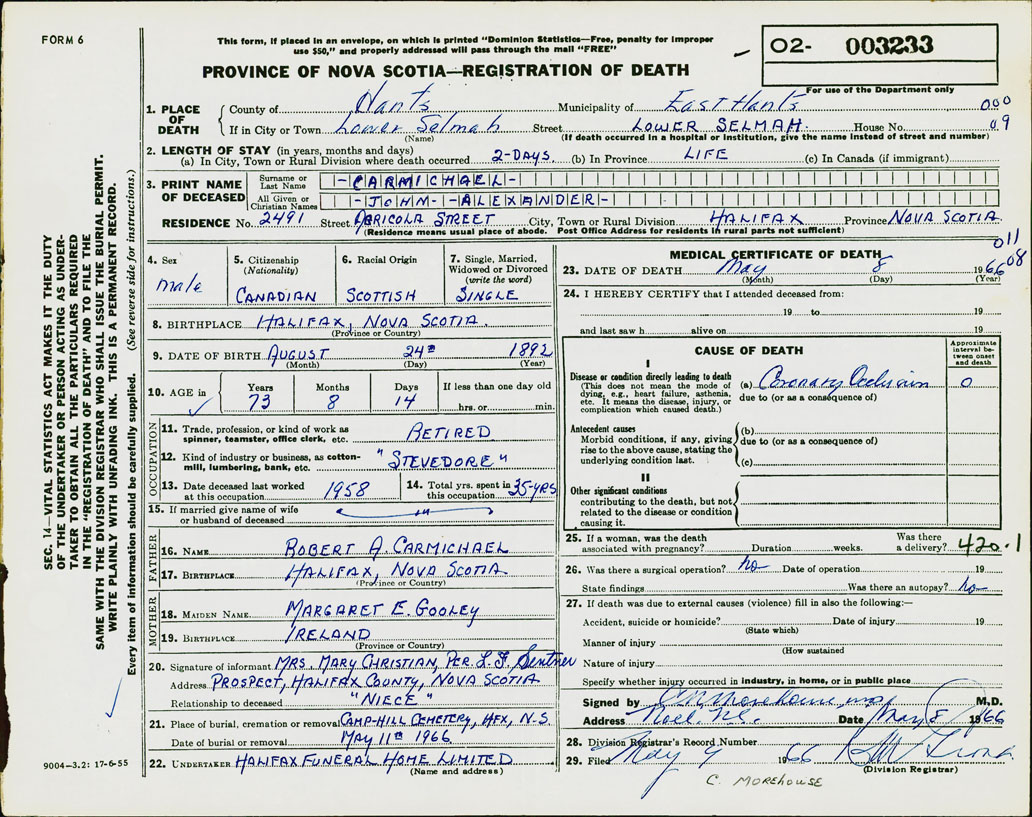 FORM 6
This form, if placed in an envelope, on which is printed "Dominion Statistics—Free, penalty for improper
use $50," and properly addressed will pass through the mail "FREE"
O2- 003233
For use of the Department only
PROVINCE OF NOVA SCOTIA—REGISTRATION OF DEATH
1. PLACE OF DEATH County of Hants Municipality of East Hants 000
If in City or Town Lower Selmah Street LOWER SELMAH. House No. 09
(Name) (If death occurred in a hospital or institution, give the name instead of street and number)
2. LENGTH OF STAY (in years, months and days)
(a) In City, Town or Rural Division where death occurred 2-DAYS. (b) In Province LIFE (c) In Canada (if immigrant)
3. PRINT NAME OF DECEASED Surname or Last Name -CARMICHAEL-
All Given or Christian Names -JOHN- -ALEXANDER-
RESIDENCE No. 2491 Street AGRICOLA STREET City, Town or Rural Division HALIFAX Province NOVA SCOTIA
(Residence means usual place of abode. Post Office Address for residents in rural parts not sufficient)
011
08
SEC. 14—VITAL STATISTICS ACT MAKES IT THE DUTY
OF THE UNDERTAKER OR PERSON ACTING AS UNDER-
TAKER TO OBTAIN ALL THE PARTICULARS REQUIRED
IN THE "REGISTRATION OF DEATH" AND TO FILE THE
SAME WITH THE DIVISION REGISTRAR WHO SHALL ISSUE THE BURIAL PERMIT.
WRITE PLAINLY WITH UNFADING INK. THIS IS A PERMANENT RECORD.
Every item of information should be carefully supplied. (See reverse side for instructions.)
4. Sex
male
5. Citizenship
(Nationality)
CANADIAN
6. Racial Origin
SCOTTISH
7. Single, Married,
Widowed or Divorced
(write the word)
SINGLE
8. BIRTHPLACE HALIFAX, NOVA SCOTIA.
(Province or Country)
9. DATE OF BIRTH AUGUST 24th 1892
(Month) (Day) (Year)
10. AGE in Years Months Days If less than one day old
73 8 14 hrs. or min.
OCCUPATION
11. Trade, profession, or kind of work as
spinner, teamster, office clerk, etc. RETIRED
12. Kind of industry or business, as cotton-
mill, lumbering, bank, etc. "STEVEDORE"
13. Date deceased last worked
at this occupation 1958
14. Total yrs. spent in
this occupation 35-YRS
15. If married give name of wife
or husband of deceased
FATHER
16. NAME ROBERT A. CARMICHAEL
17. BIRTHPLACE HALIFAX, NOVA SCOTIA
(Province or Country)
MOTHER
18. MAIDEN NAME MARGARET E. GOOLEY
19. BIRTHPLACE IRELAND
(Province or Country)
20. Signature of informant MRS. MARY CHRISTIAN, PER. L.F. Sentner
Address PROSPECT, HALIFAX COUNTY, NOVA SCOTIA
Relationship to deceased "NIECE"
21. Place of burial, cremation or removal CAMP-HILL CEMETERY, HFX, N.S.
Date of burial or removal MAY 11th 1966
22. UNDERTAKER HALIFAX FUNERAL HOME LIMITED
(Name and address)
9004—3.2: 17-6-55
MEDICAL CERTIFICATE OF DEATH
23. DATE OF DEATH May 8 1966
(Month) (Day) (Year)
24. I HEREBY CERTIFY that I attended deceased from:
19 to 19
and last saw h alive on 19
CAUSE OF DEATH
Approximate
interval be-
tween onset
and death
I
Disease or condition directly leading to death
(This does not mean the mode of
dying, e.g., heart failure, asthenia,
etc. It means the disease, injury, or
complication which caused death.)
(a) Coronary Occlusion 0
due to (or as a consequence of)
Antecedent causes
Morbid conditions, if any, giving
rise to the above cause, stating the
underlying condition last.
(b)
due to (or as a consequence of)
(c)
II
Other significant conditions
contributing to the death, but not
related to the disease or condition
causing it.
25. If a woman, was the death
associated with pregnancy? Duration weeks. Was there
a delivery? 420.1
26. Was there a surgical operation? no Date of operation 19
State findings Was there an autopsy? no
27. If death was due to external causes (violence) fill in also the following:—
Accident, suicide or homicide? Date of injury 19
(State which)
Manner of injury
(How sustained
Nature of injury
Specify whether injury occurred in industry, in home, or in public place
Signed by C.M. Morehouse M.D.
Address Noel N.S. Date May 8 1966
28. Division Registrar's Record Number
29. Filed May 9 1966
(Division Registrar)
C. MOREHOUSE